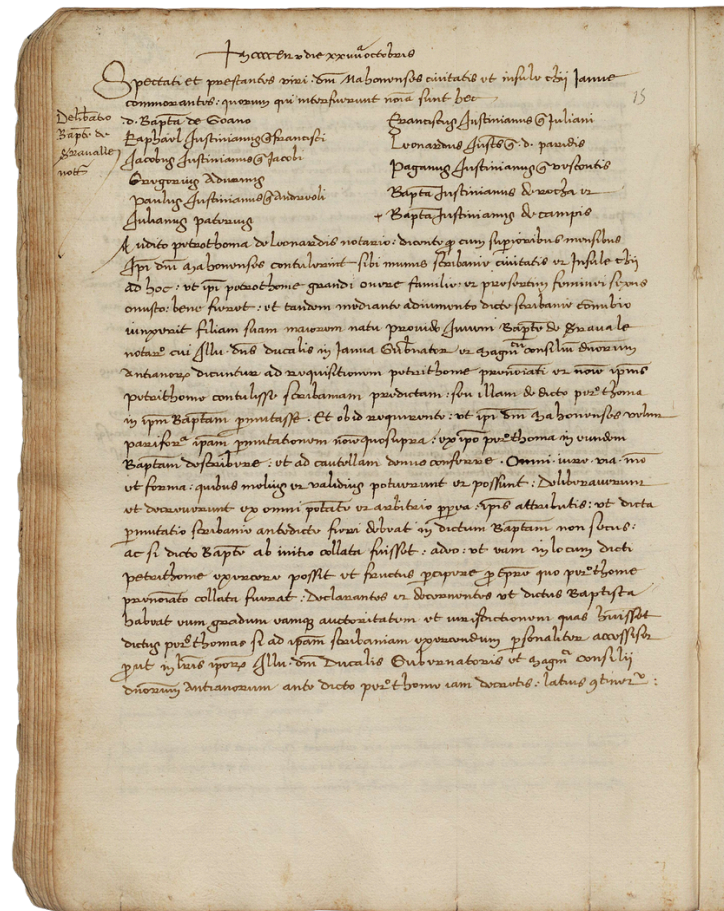 die xxvii octobris
Spectati et prestantes viri dm̃ Mahonenses civitatis et insule chij Janue
commorantes: quorum qui interfuerunt noĩa sunt hec
15
Deliberatio
Bapte de
notr̃
d. Bapta de Goano
Raphael Justinianus q francisci
Jacobus Justinianus q Jacobi
Gregorius Adurnus
Paulus Justinianus q Andreoli
Julianus paterius
Franciscus Justinianus q Juliani
Leonardus Justs q. d. paridis
Paganus Justinianus q vescontis
Bapta Justinianus de rocha et
+ Bapta Justinianus de campis
Audito petrothoma de leonardis notario. dicente cum superioribus mensibus
Ipi dm̃ mahonenses contulerint sibi munus scribanie civitatis et Insule chij
ad hoc: ut ipi petrothome grandi onere familie et presertim feminei sexus
onusto: bene fieret: et tandem mediante adiumento dicte scribanie
iunxerit filiam suam maiorem natu provido Juveni Bapte de Gravale
notaro cui Illu. dns ducalis in Janua Gubnator et magm consilium dnorum
antianorum dicuntur ad requisitionem petrithome prenoĩati et noĩe ipius
petrithome contulisse scribaniam predictam: seu illam de dicto petrothoma
in ipm Baptam pmutasse. Et ob id requirente: ut ipi dm̃ mahonenses velint
pariforr ipam pmutationem quosupra: ex ipo petrothoma in eundem
Baptam describere: et ad cautellam denuo conferre. Omni. iure. via. mo
et forma: quibus melius et validius potuerunt et possunt: deliberaverunt
et decreverunt ex omni ptate et arbitrio ipis attributis: ut dicta
pmutatio scribanie antedicte fieri debeat in dictum Baptam non secus:
ac si dicto Bapte ab initio collata fuisset: adeo: ut eam in locum dicti
petrithome exercere possit et fructus pcipere p tpre quo petrothome
prenoĩato collata fuerat: declarantes et decernentes ut dictus Baptista
habeat eum gradum eamque auctoritatem et iurisdictionem quas huisset
dictus petrothomas si ad ipam scribaniam exercendum psonaliter accessisset
put in lris iporum Illu. dm̃ Ducalis Gubernatoris et magci Consilii
dnorum Antianorum ante dicto petrothome iam decretis: latius